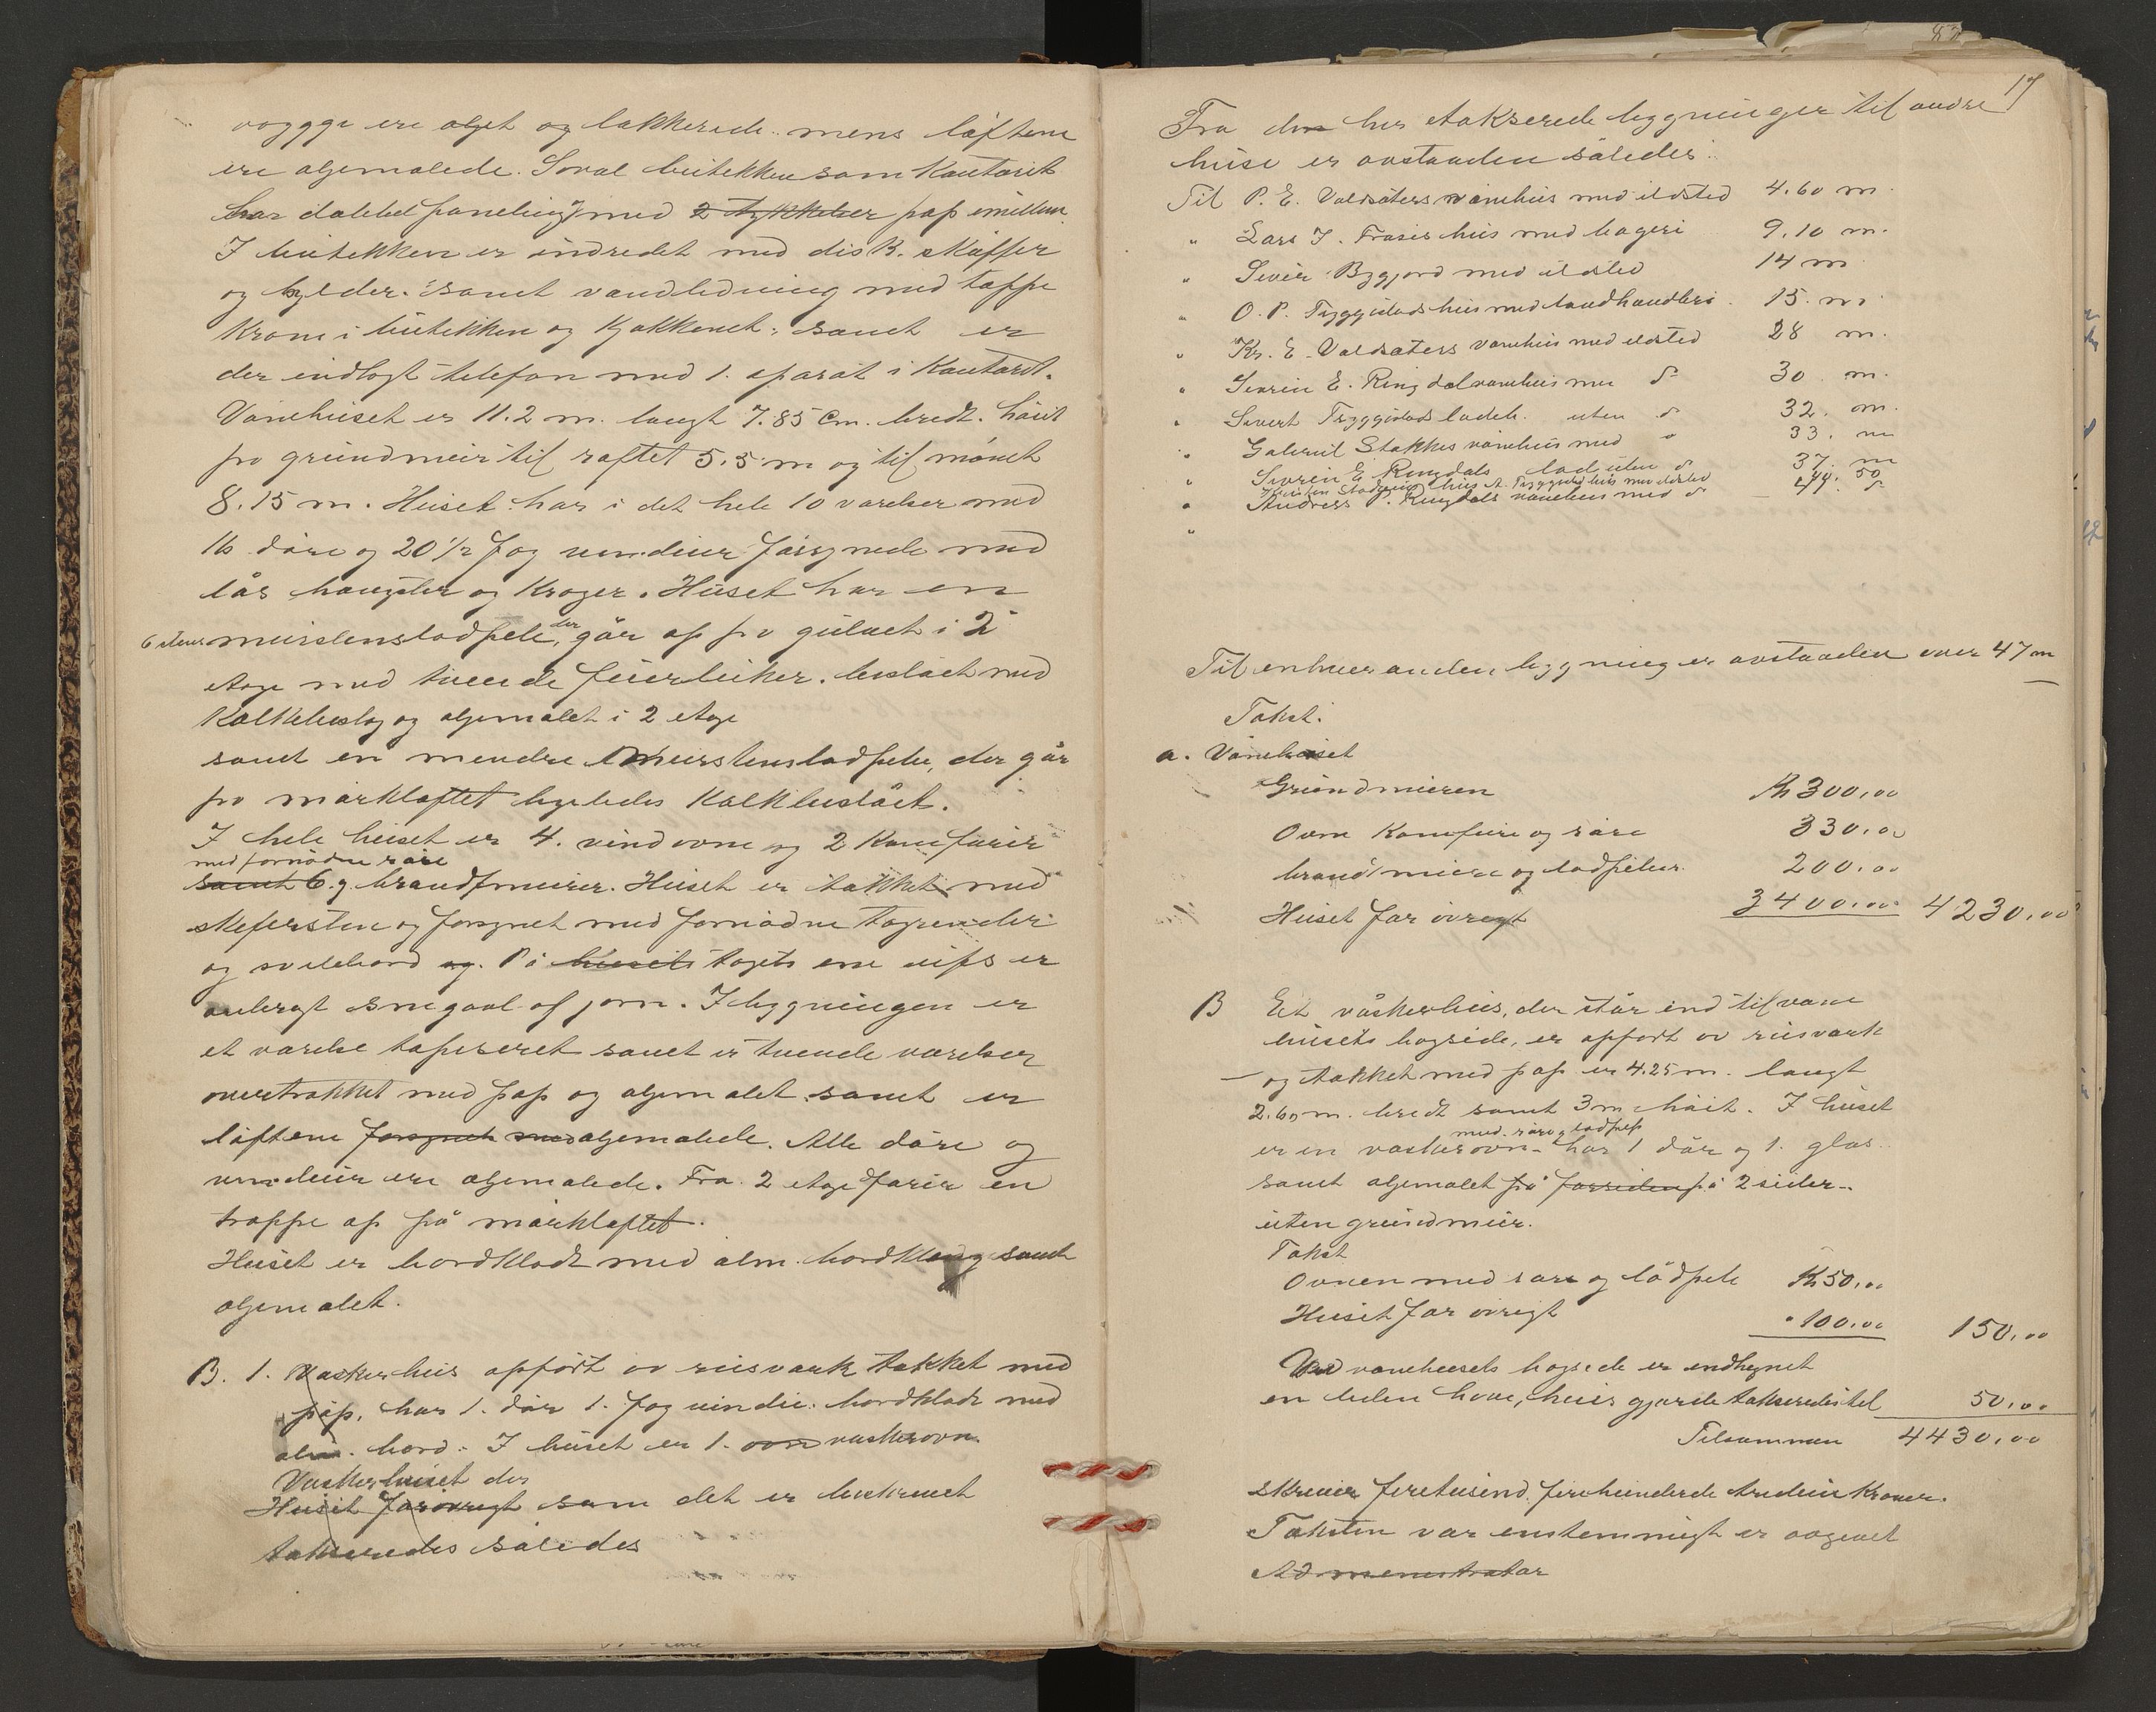 vægge ere oljet og lakkerede mens lofterne
ere oljemalede. Soval butekken som Kontoret
har dobbel paneling med 2 tykkelser pap imellem.
I butekken er indredet med disk. skuffer
og hylder. samt vandledning med tappe
Kran i butekken og Kjøkkenet, samt er
der indlagt telefon med 1. aparat i Kontoret.
Vånehuset er 11.2 m. langt 7.85 Cm. bredt. høit
fra grundmur til raftet 5.5 m og til mønet
8.15 m. Huset har i det hele 10 værelser med
16 døre og 20 1/2 fog vinduer forsynede med
lås hængsler og Kroger. Huset har en
6 eters murstensladpibe, der går op fra gulvet i 2
etage med tvende feierluker. beslået med
Kalkbeslag og oljemalet i 2 etage
samt en mendre Murstensladpibe, der går
fra mørkloftet ligeledes Kalkbeslået.
I hele huset er 4. vindovne og 2 Komfurer
med fornødne røre
samt 6. g. brandmurer. Huset er tækket med
skefersten og forsynet med fornødne tagrender
og svilebord og. På husets tagets ene side er
anbragt snegaal af jern. I bygningen er
et værelse tapeseret samt er tvende værelser
overtrækket med pap og oljemalet samt er
lofterne forsynet med oljemalede. Alle døre og
vinduer ere oljemalede. Fra 2 etage fører en
trappe op på mørkloftet.
Huset er bordklædt med alm. bordklædng samt
oljemalet.
B. 1. Vaskerhus opført av reisværk tækket med
pap, har 1. dør 1. fog vindu. bordklædt med
alm. bord. I huset er 1. ovn vaskerovn.
Vaskerhuset der
Huset forøvrigt som det er beskrevet
takseredes således
17
Fra den her takserede bygninger til andre
huse er avstanden således:
Til P. E. Valdsæters vånehus med ildsted 4.60 m
" Lars J. Frøsies hus med bageri 9.10 m.
" Siver Bygjord med ildsted 14 m
" O. P. Tryggestads hus med landhandleri 15. m
" Kr. E. Valdsæters vånehus med ildsted 28 m.
" Severin E. Ringdal vånehus med do 30 m.
" Sivert Tryggestads ladeb. uten do 32. m.
" Gabriel Stakkes vånehus med do 33. m
" Severin E. Ringdals lade uten do 37. m
hus A. Tryggestad hus med ildsted 44. 50
" Andreas P. Ringdals vånehus med do 47. do
"
Til enhver anden bygning er avstanden over 47 m
Takst.
a. Vånehuset
Grundmuren Kr 300,00
Ovne Komfure og røre 330,00
brandmure og ladpiber 200,00
Huset for øvrigt 3400,00 4230,00
B Et våskerhus, der står ind til våne
husets bagside, er opført av reisværk
og tækket med pap er 4.25 m. langt
2.60 m. bredt samt 3 m høit. I huset
med. røre g ladpip
er en vaskerovn. har 1 dør og 1. glas
samt oljemalet på forsiden på 2 sider.
uten grundmur.
Takst
Ovnen med røre og lådpibe Kr 50,00
Huset for øvrigt " 100,00 150,00
Ved vånehusets bagside er indhegnet
en liden have, hvis gjerde takseredes til 50,00
Tilsammen 4430,00
skriver firetusind firehundrede tredeve Kroner.
Taksten var enstemmigt er avgivet
Admenestrator